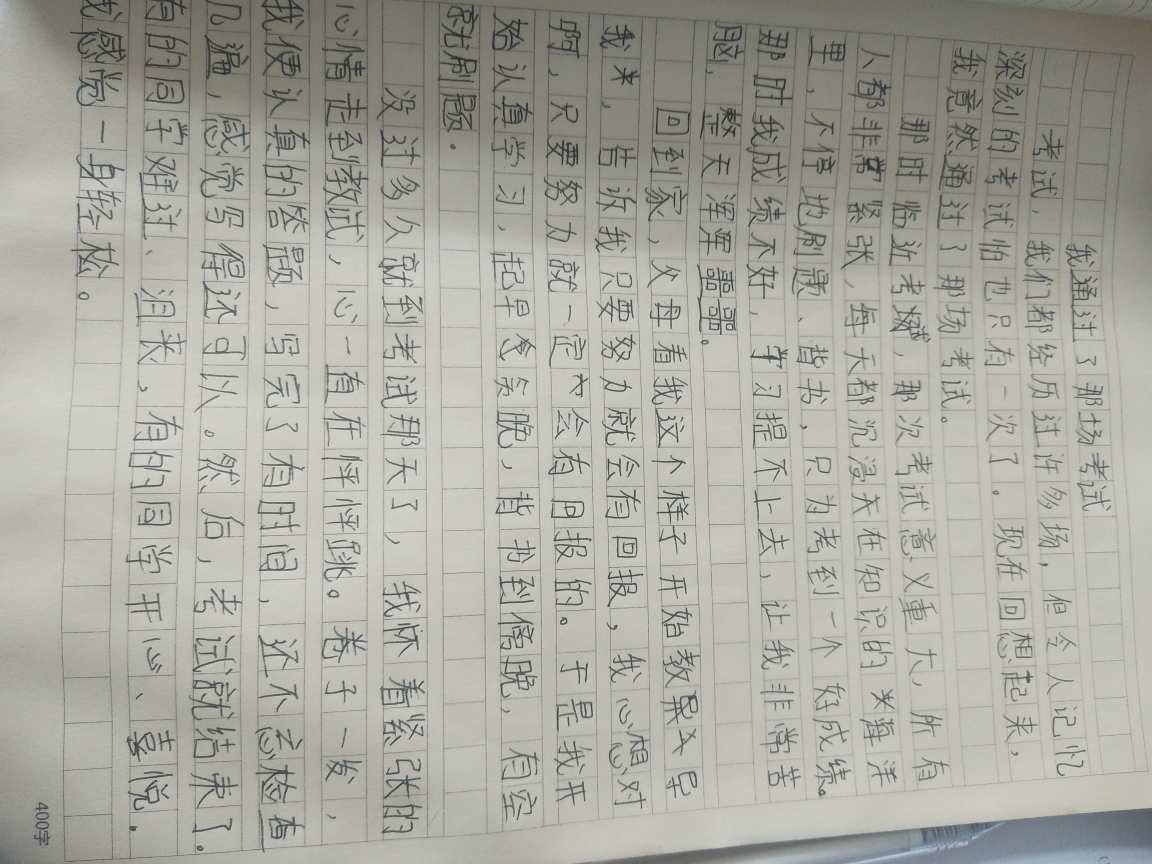 我通过了那场考试
考试，我们都经历过许多场，但令人记忆
深刻的考试怕也只有一次了。现在回想起来，
我竟然通过了那场考试。
那时临近考试，那次考试意义重大，所有
人都非常紧张，每天都沉浸在知识的海洋
里，不停地刷题、背书，只为考到一个好成绩。
那时我成绩不好，学习提不上去，让我非常苦
恼，整天浑浑噩噩。
回到家，父母看我这个样子开始教导
我，告诉我只要努力就会有回报，我心想对
啊，只要努力就一定会有回报的。于是我开
始认真学习，起早贪晚，背书到傍晚，有空
就刷题。
没过多久就到考试那天了，我怀着紧张的
心情走到教试，心一直在怦怦跳。卷子一发，
我便认真的答题，写完了有时间，还不忘检查
几遍，感觉写得还可以。然后，考试就结束了。
有的同学难过、沮丧，有的同学开心、喜悦，
我感觉一身轻松。
400字